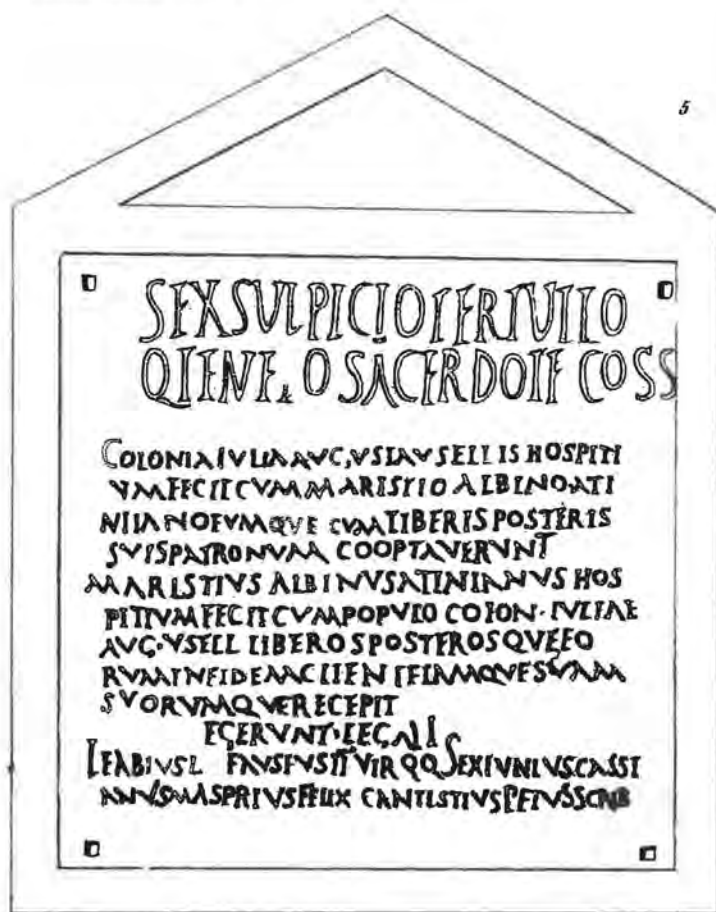 5
SEX SVLPICIO TERTVLLO
Q TINE.O SACERDOTE COSS
COLONIA IVLIA AVGVSTA VSELLIS HOSPITI
VM FECIT CVM M ARISTIO ALBINO ATI
NIANO EVMQVE CVM LIBERIS POSTERIS
SVIS PATRONVM COOPTAVERVNT
M ARISTIVS ALBINVS ATINIANVS HOS
PITIVM FECIT CVM POPVLO COLON · IVLIAE
AVG · VSELL LIBEROS POSTEROSQVE EO
RVM IN FIDEM CLIENTELAMQVE SVAM
SVORVMQVE RECEPIT
EGERVNT · LEGATI
L FABIVS L FAVSTVS II VIR QQ SEX IVNIVS CASSI
ANVS M ASPRIVS FELIX C ANTISTIVS PETVS